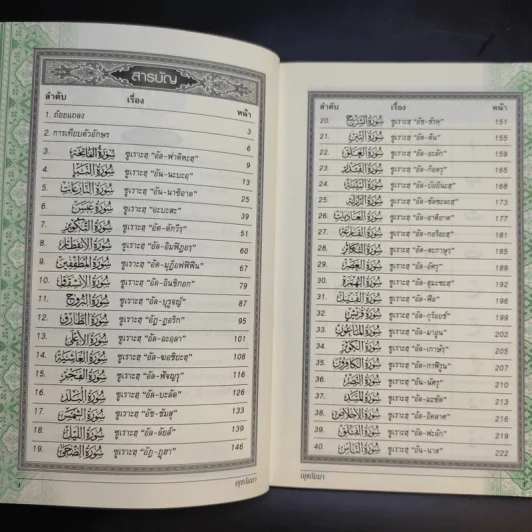 สารบัญ
ลำดับ เรื่อง หน้า
1. ถ้อยแถลง 3
2. การเทียบตัวอักษร 6
3. سُورَةُ الْفَاتِحَةِ ซูเราะฮฺ "อัล-ฟาติหะฮฺ" 9
4. سُورَةُ النَّبَإِ ซูเราะฮฺ "อัน-นะบะอฺ" 13
5. سُورَةُ النَّازِعَاتِ ซูเราะฮฺ "อัน-นาซิอาต" 25
6. سُورَةُ عَبَسَ ซูเราะฮฺ "อะบะสะ" 39
7. سُورَةُ التَّكْوِيرِ ซูเราะฮฺ 51
8. سُورَةُ الْانْفِطَارِ ซูเราะฮฺ 60
9. سُورَةُ الْمُطَفِّفِينَ ซูเราะฮฺ 67
10. سُورَةُ الْانْشِقَاقِ ซูเราะฮฺ 79
11. سُورَةُ الْبُرُوجِ ซูเราะฮฺ 87
12. سُورَةُ الطَّارِقِ ซูเราะฮฺ 95
13. سُورَةُ الْأَعْلَى ซูเราะฮฺ 101
14. سُورَةُ الْغَاشِيَةِ ซูเราะฮฺ 108
15. سُورَةُ الْفَجْرِ ซูเราะฮฺ 116
16. سُورَةُ الْبَلَدِ ซูเราะฮฺ "อัล-บะลัด" 126
17. سُورَةُ الشَّمْسِ ซูเราะฮฺ "อัช-ชัมสฺ" 133
18. سُورَةُ اللَّيْلِ ซูเราะฮฺ "อัล-ลัยลฺ" 139
19. سُورَةُ الضُّحَى ซูเราะฮฺ "อัฎ-ฎุหา" 146
ลำดับ เรื่อง หน้า
20. سُورَةُ الشَّرْحِ ซูเราะฮฺ "อัช-ชัรหฺ" 151
21. سُورَةُ التِّينِ ซูเราะฮฺ "อัต-ตีน" 155
22. سُورَةُ الْعَلَقِ ซูเราะฮฺ "อัล-อะลัก" 159
23. سُورَةُ الْقَدْرِ ซูเราะฮฺ "อัล-ก็อดรฺ" 165
24. سُورَةُ الْبَيِّنَةِ ซูเราะฮฺ 168
25. سُورَةُ الزَّلْزَلَةِ ซูเราะฮฺ 173
26. سُورَةُ الْعَادِيَاتِ ซูเราะฮฺ "อัล-อาดิยาต" 177
27. سُورَةُ الْقَارِعَةِ ซูเราะฮฺ 181
28. سُورَةُ التَّكَاثُرِ ซูเราะฮฺ 185
29. سُورَةُ الْعَصْرِ ซูเราะฮฺ 189
30. سُورَةُ الْهُمَزَةِ ซูเราะฮฺ 192
31. سُورَةُ الْفِيلِ ซูเราะฮฺ "อัล-ฟีล" 196
32. سُورَةُ قُرَيْشٍ ซูเราะฮฺ 199
33. سُورَةُ الْمَاعُونِ ซูเราะฮฺ "อัล-มาอูน" 202
34. سُورَةُ الْكَوْثَرِ ซูเราะฮฺ 205
35. سُورَةُ الْكَافِرُونَ ซูเราะฮฺ "อัล-กาฟิรูน" 207
36. سُورَةُ النَّصْرِ ซูเราะฮฺ 210
37. سُورَةُ الْمَسَدِ ซูเราะฮฺ "อัล-มะซัด" 213
38. سُورَةُ الْإِخْلَاصِ ซูเราะฮฺ "อัล-อิคลาศ" 216
39. سُورَةُ الْفَلَقِ ซูเราะฮฺ "อัล-ฟะลัก" 219
40. سُورَةُ النَّاسِ ซูเราะฮฺ "อัน-นาส" 222